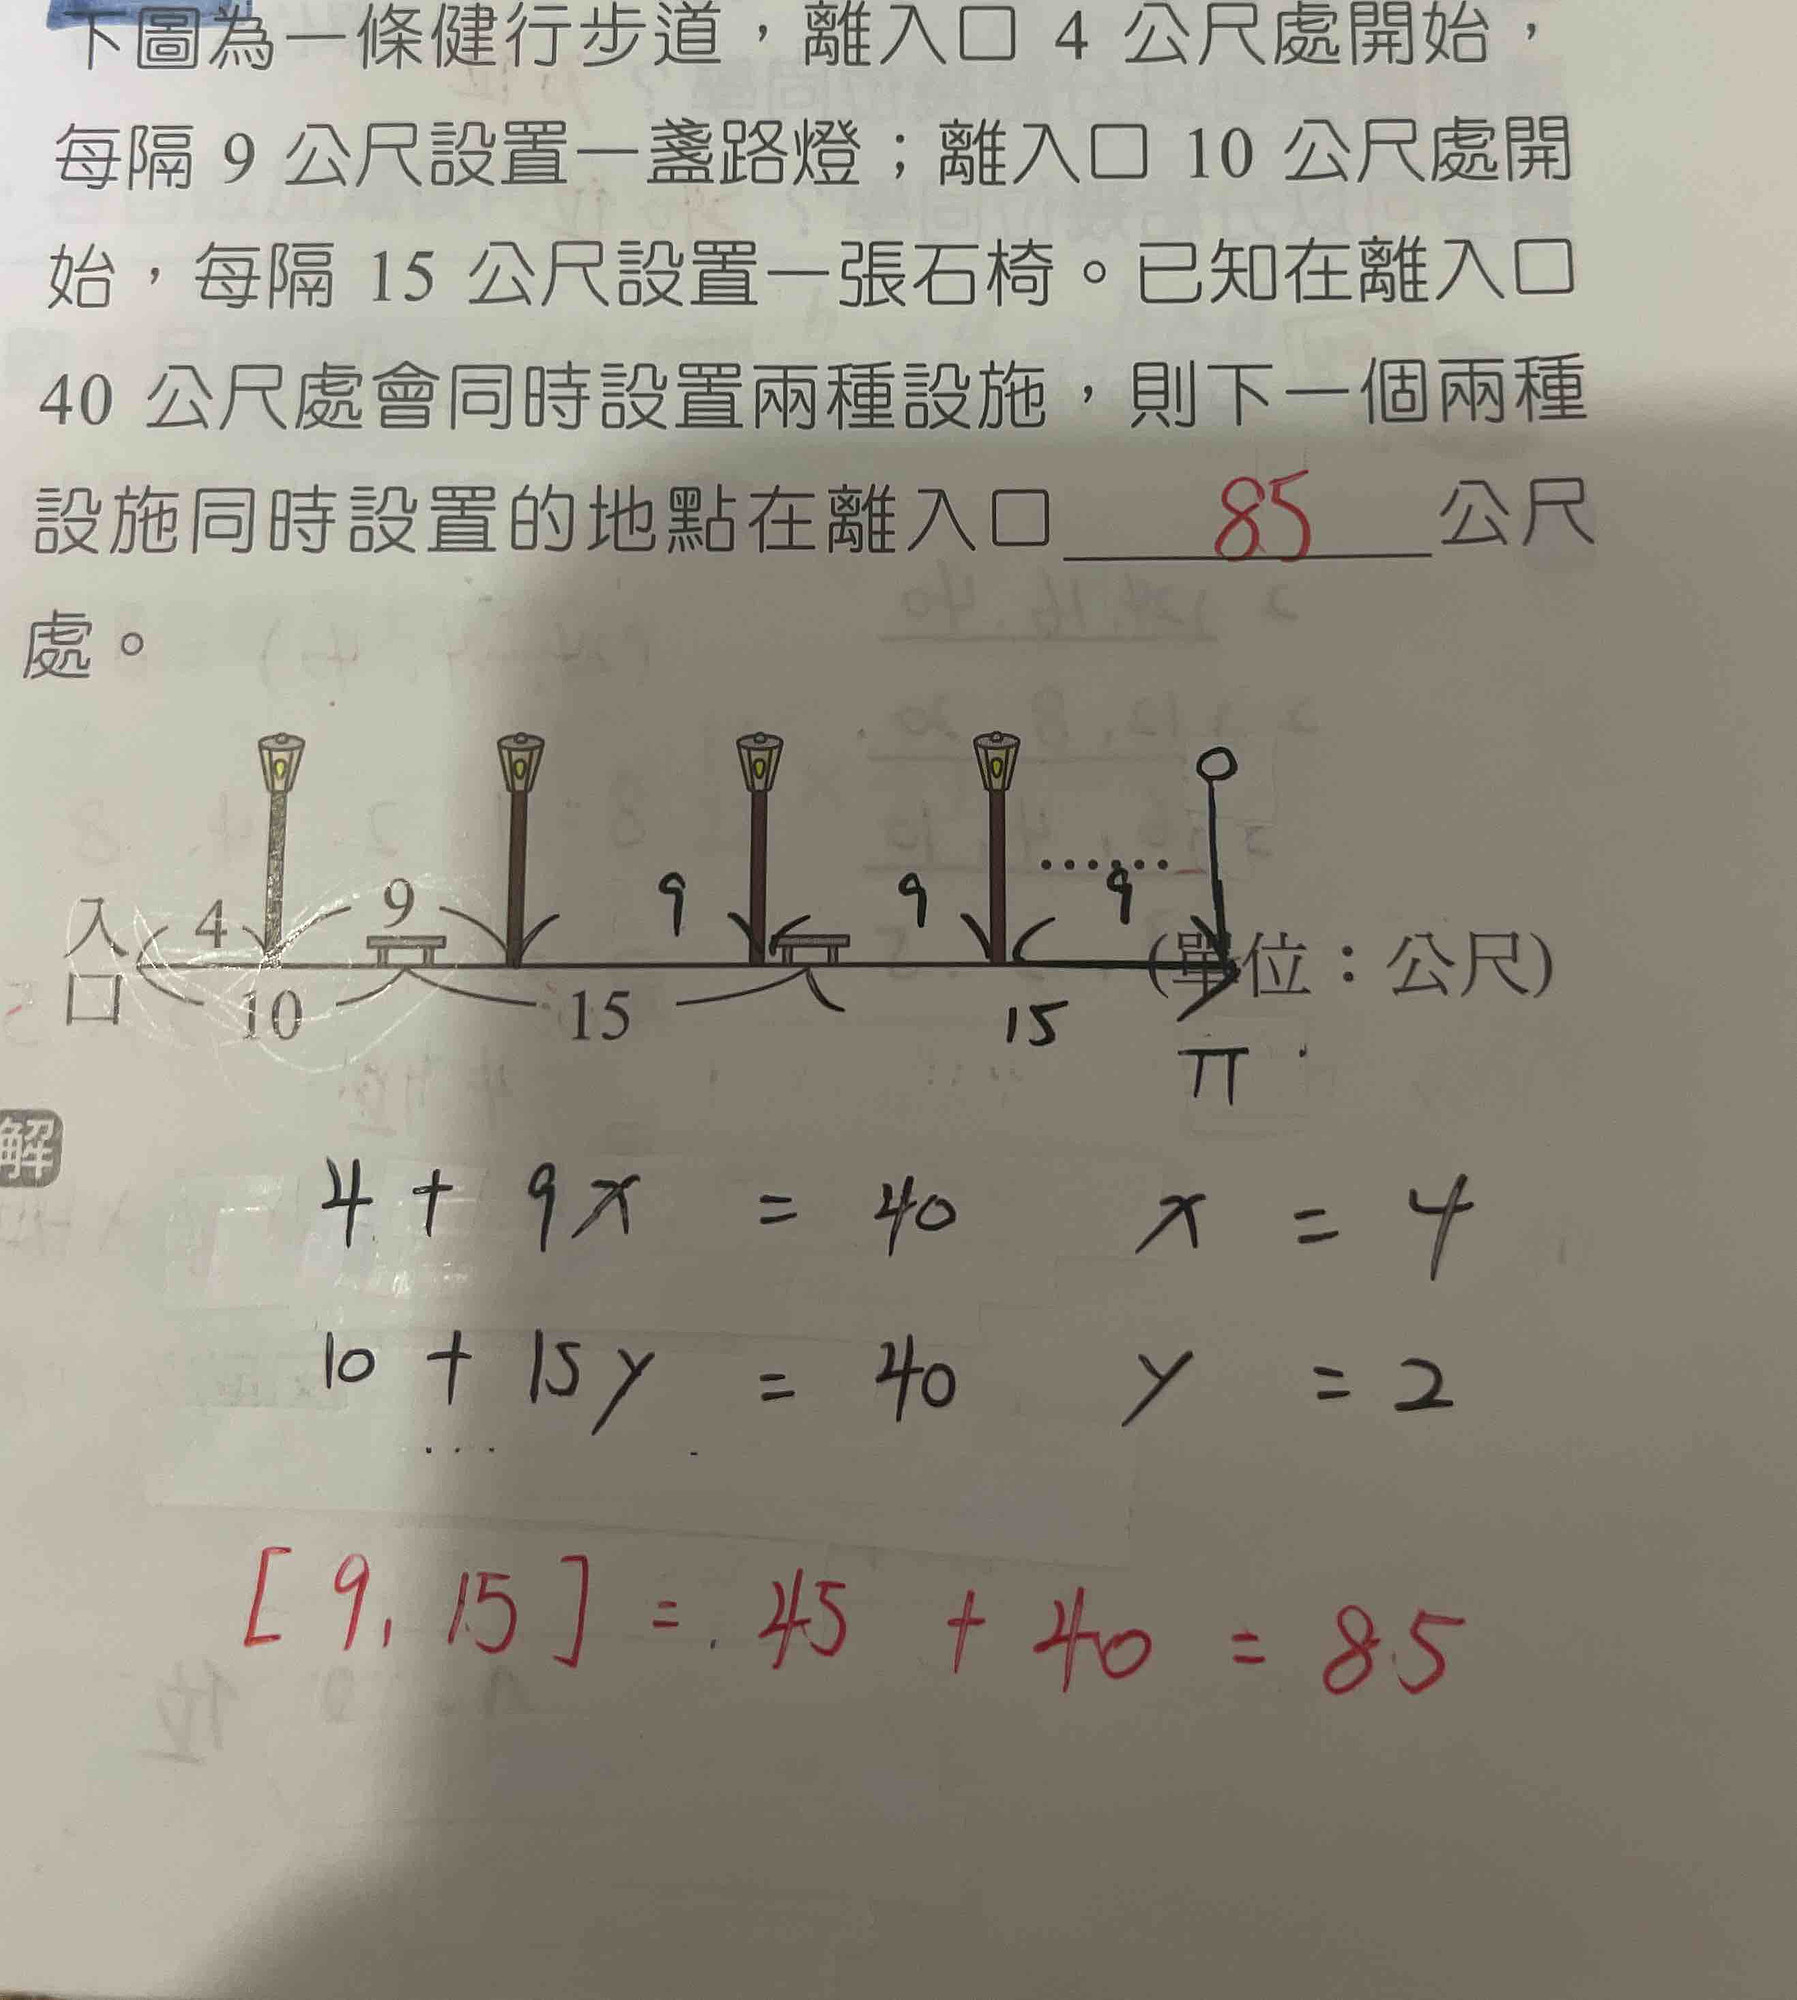 下圖為一條健行步道，離入口 4 公尺處開始，
每隔 9 公尺設置一盞路燈；離入口 10 公尺處開
始，每隔 15 公尺設置一張石椅。已知在離入口
40 公尺處會同時設置兩種設施，則下一個兩種
設施同時設置的地點在離入口 85 公尺
處。
9 9 ...... 9
入口 4 9 (單位：公尺)
10 15 15
解
4 + 9x = 40 x = 4
10 + 15y = 40 y = 2
[9, 15] = 45 + 40 = 85